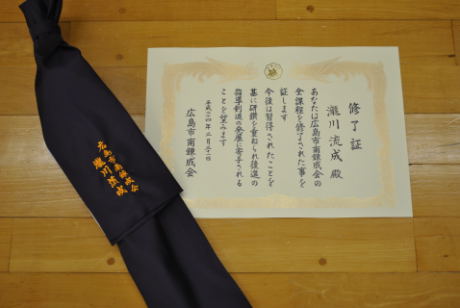 修了証
瀧川流成殿
あなたは広島市南錬成会の
全課程を修了された事を
証します
今後は習得されたことを
基に研鑽を重ねられ後進の
指導剣道の発展に寄与される
ことを望みます
平成二四年三月二一日
広島市南錬成会
広島市南錬成会
瀧川流成